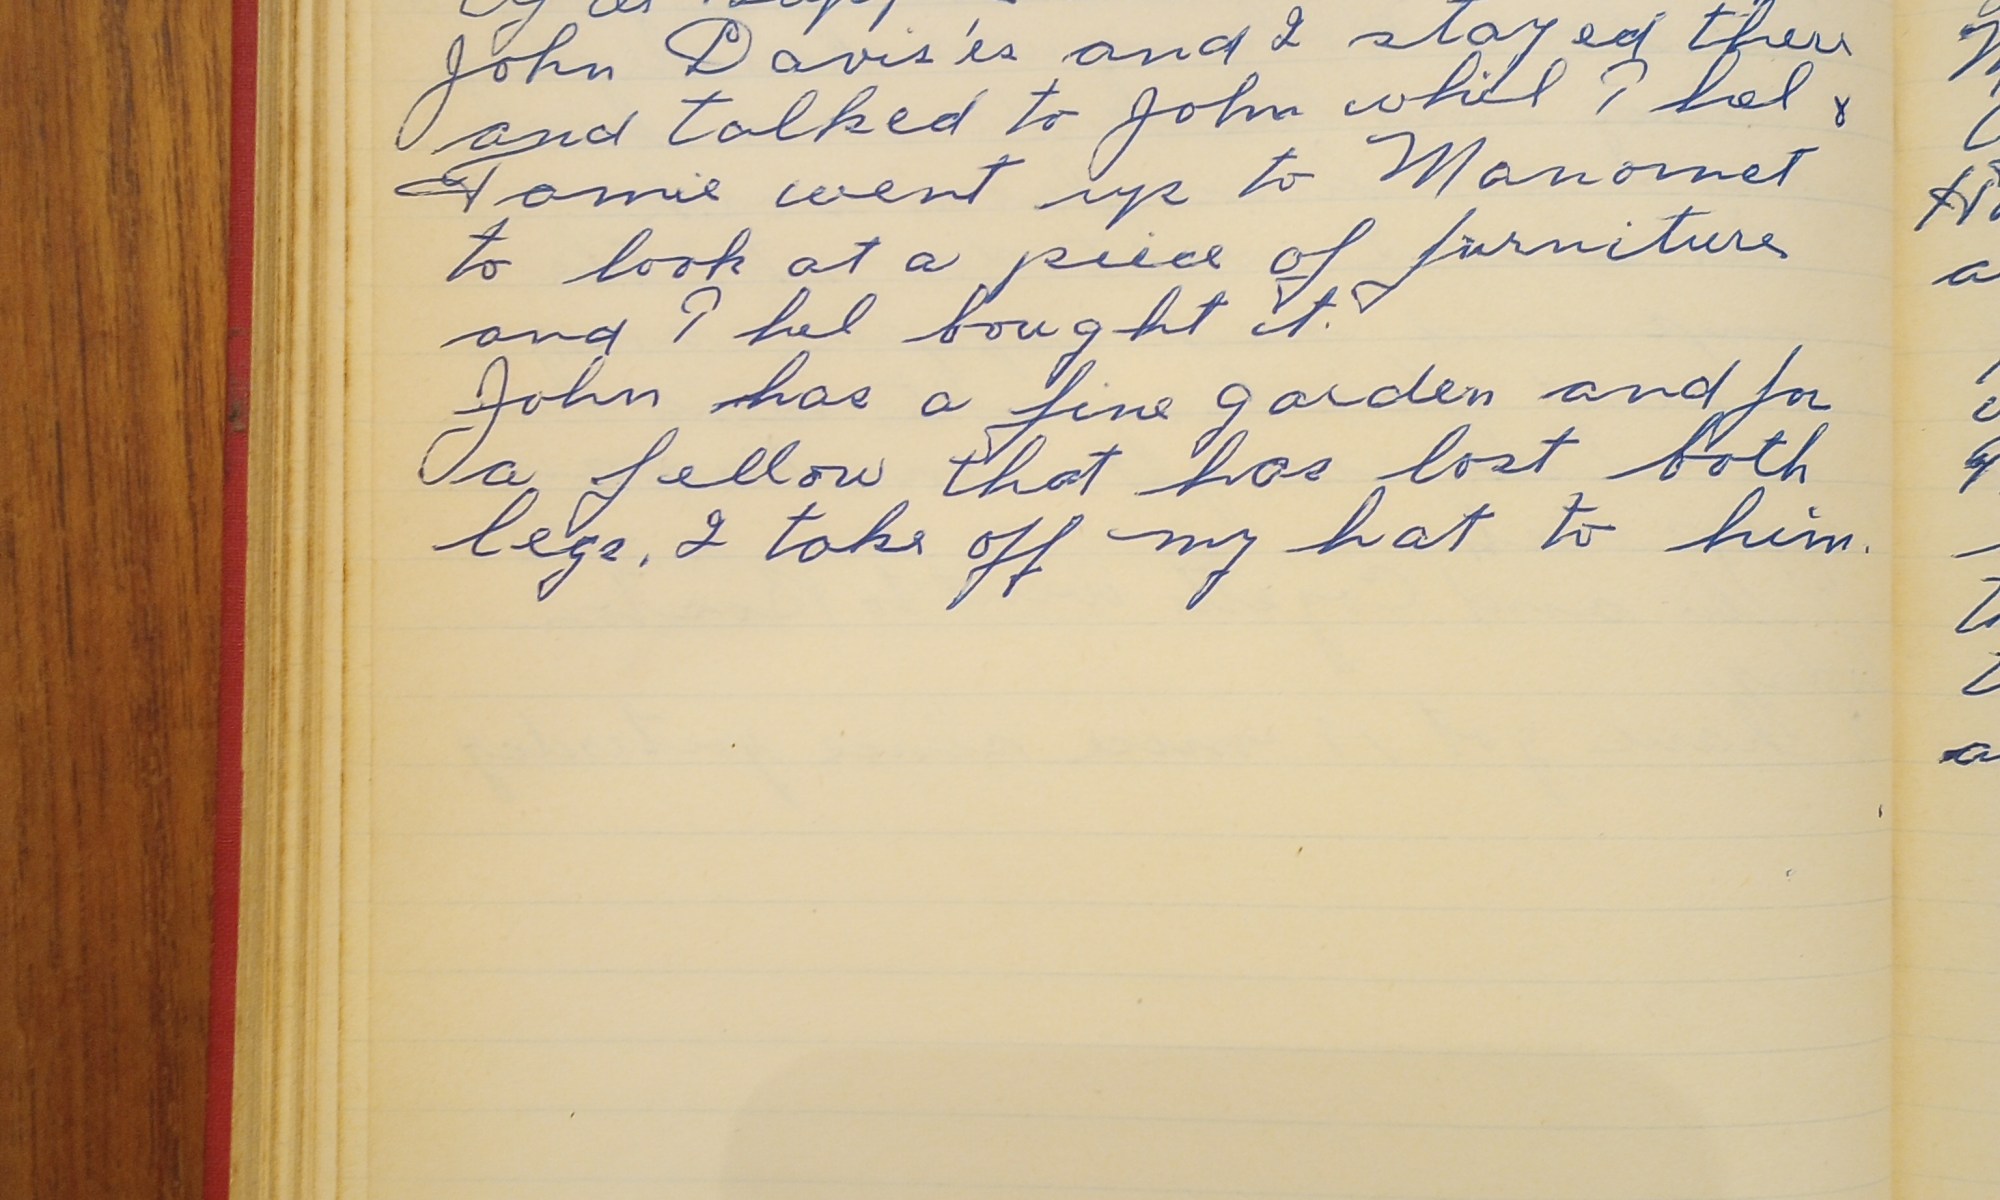 John Davis'es and I stayed there
and talked to John whil Thel &
Tomie went up to Manomet
to look at a piece of furniture
and Thel bought it.
John has a fine garden and for
a fellow that has lost both
legs, I take off my hat to him.